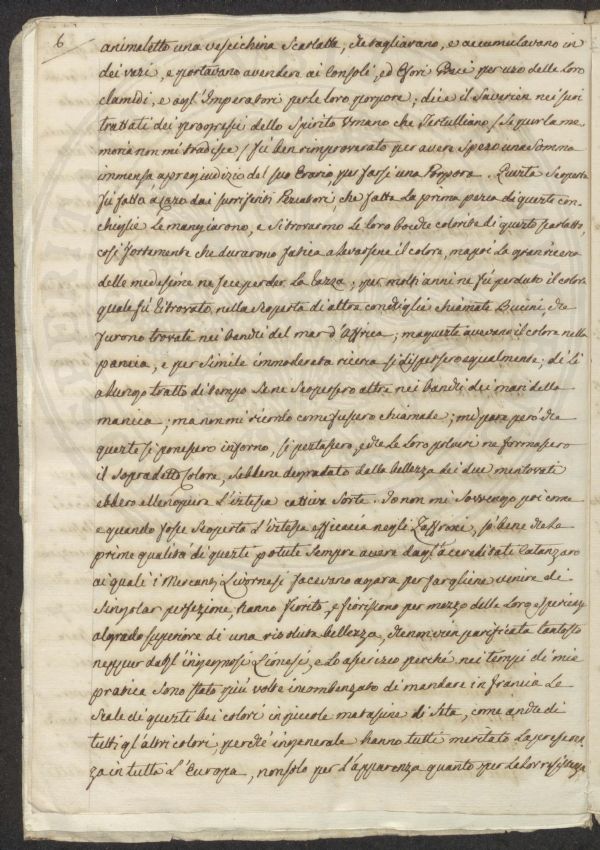 6
animaletto una vescichina Scarlatta, che tagliavano, e accumulavano in
dei vasi, e portavano a vendere ai Consoli, ed Efori Greci per uso delle Loro
clamidi, e agl'Imperatori per le loro porpore; dice il Saverien nei suoi
trattati dei progressi dello Spirito Umano che Tertulliano /se pur la me-
moria non mi tradisce/ fù ben rimproverato per avere speso una Somma
immensa, a pregiudizio del suo Erario, per farsi una Porpora. Questa Scoperta
fù fatta a caso dai surriferiti Pescatori, che fatta La prima pesca di queste con-
chiglie Le mangiarono, e si trovarono Le loro bocche colorite di questo scarlatto,
così fortemente che durarono fatica a levarsene il colore, ma poi La gran ricerca
delle medesime ne fece perder La razza; per molti anni ne fù perduto il colore
quale fù ritrovato, nella scoperta di altre conchiglie chiamate Buccini, che
furono trovate nei banchi del mar d'Affrica; ma queste avevano il colore nella
pancia, e per simile immoderata ricerca si dispersero egualmente; di lì
a Lungo tratto di tempo se ne scopersero altre nei banchi dei mari della
manica; ma non mi ricordo come fussero chiamate; mi pare però che
queste si ponessero in forno, si pestassero, e che le Loro polveri ne formassero
il sopradetto Colore, sebbene degradato dalla bellezza dei due mentovati
ebbero elleno pure L'istessa cattiva Sorte. Io non mi sovvengo poi come
e quando fosse scoperta L'istessa efficacia negli Zaffroni, sò bene che Le
prime qualità di questi potute sempre avere dagl'accreditati Catanzaro
ai quali i Mercanti Livornesi facevano a gara per fargliene venire di
singolar perfezione, hanno fiorito, e fioriscono per mezzo delle Loro esperienze
al grado superiore di una risoluta bellezza, che non vien parificata tantosto
neppur dagl'ingegnosi Lionesi, e Lo asserisco perchè nei tempi di mie
pratica sono stato più volte incombenzato di mandare in Francia Le
Scale di questi bei colori in piccole matassine di Seta, come anche di
tutti gl'altri colori, perchè in generale hanno tutti meritato La preferen-
za in tutta L'Europa, non solo per L'apparenza quanto per La Lor resistenza